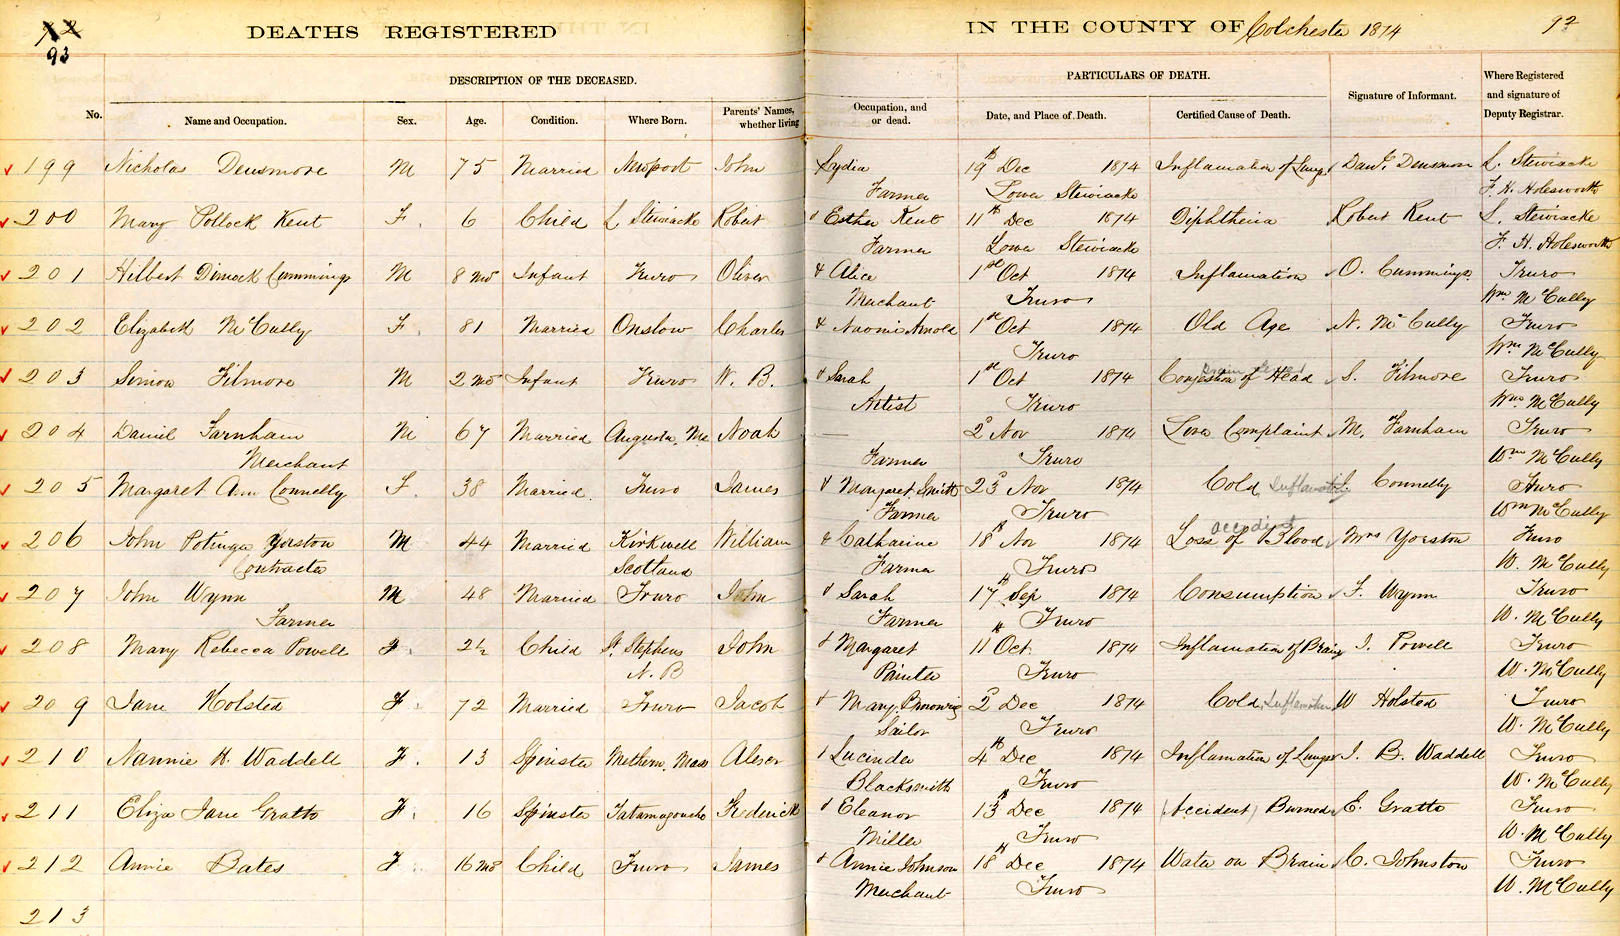 93
DEATHS REGISTERED IN THE COUNTY OF Colchester 1874 92
DESCRIPTION OF THE DECEASED. PARTICULARS OF DEATH.
No. Name and Occupation. Sex. Age. Condition. Where Born. Parents' Names, whether living Occupation, and or dead. Date, and Place of Death. Certified Cause of Death. Signature of Informant. Where Registered and signature of Deputy Registrar.
199 Nicholas Densmore M 75 Married Newport John Lydia 19th Dec 1874 Inflamation of Lungs Danl. Densmore L. Stewiacke
Farmer Lower Stewiacke F. H. Holesworth
200 Mary Pollock Kent F. 6 Child L Stewiacke Robert & Esther Kent 11th Dec 1874 Diphtheria Robert Kent L. Stewiacke
Farmer Lower Stewiacke F. H. Holesworth
201 Hilbert Dimock Cummings M 8 mos Infant Truro Oliver & Alice 1st Oct 1874 Inflamation O. Cummings Truro
Merchant Truro Wm McCully
202 Elizabeth McCully F. 81 Married Onslow Charles & Naomi Arnold 1st Oct 1874 Old Age N. McCully Truro
Truro Wm McCully
203 Simon Filmore M 2 mos Infant Truro W. B. & Sarah 1st Oct 1874 Congestion of Head S. Filmore Truro
Artist Truro Wm McCully
204 Daniel Farnham M 67 Married Augusta, Me Noah — 2d Nov 1874 Liver Complaint M. Farnham Truro
Merchant Farmer Truro Wm McCully
205 Margaret Ann Connelly F. 38 Married. Truro James & Margaret Smith 23d Nov 1874 Cold Inflamation Connelly Truro
Farmer Truro Wm McCully
accident
206 John Potinger Yorston M 44 Married Kirkwell William & Catharine 18th Nov 1874 Loss of Blood Mrs Yorston Truro
Contractor Scotland Farmer Truro W. McCully
207 John Wynn M 48 Married Truro John & Sarah 17th Sep 1874 Consumption F. Wynn Truro
Farmer Farmer Truro W. McCully
208 Mary Rebecca Powell F. 2½ Child St. Stephens John & Margaret 11th Oct 1874 Inflamation of Brain J. Powell Truro
N. B Painter Truro W. McCully
209 Jane Holsted F. 72 Married Truro Jacob & Mary Browning 2d Dec 1874 Cold Inflamation W Holsted Truro
Sailor Truro W. McCully
210 Nannie H. Waddell F. 13 Spinster Methern, Mass Alexr & Lucinda 4th Dec 1874 Inflamation of Lungs J. B. Waddell Truro
Blacksmith Truro W. McCully
211 Eliza Jane Gratto F. 16 Spinster Tatamagouche Frederick & Eleanor 13th Dec 1874 (Accident) Burned E. Gratto Truro
Miller Truro W. McCully
212 Annie Bates F. 16 mos Child Truro James & Annie Johnson 18th Dec 1874 Water on Brain C. Johnston Truro
Merchant Truro W. McCully
213